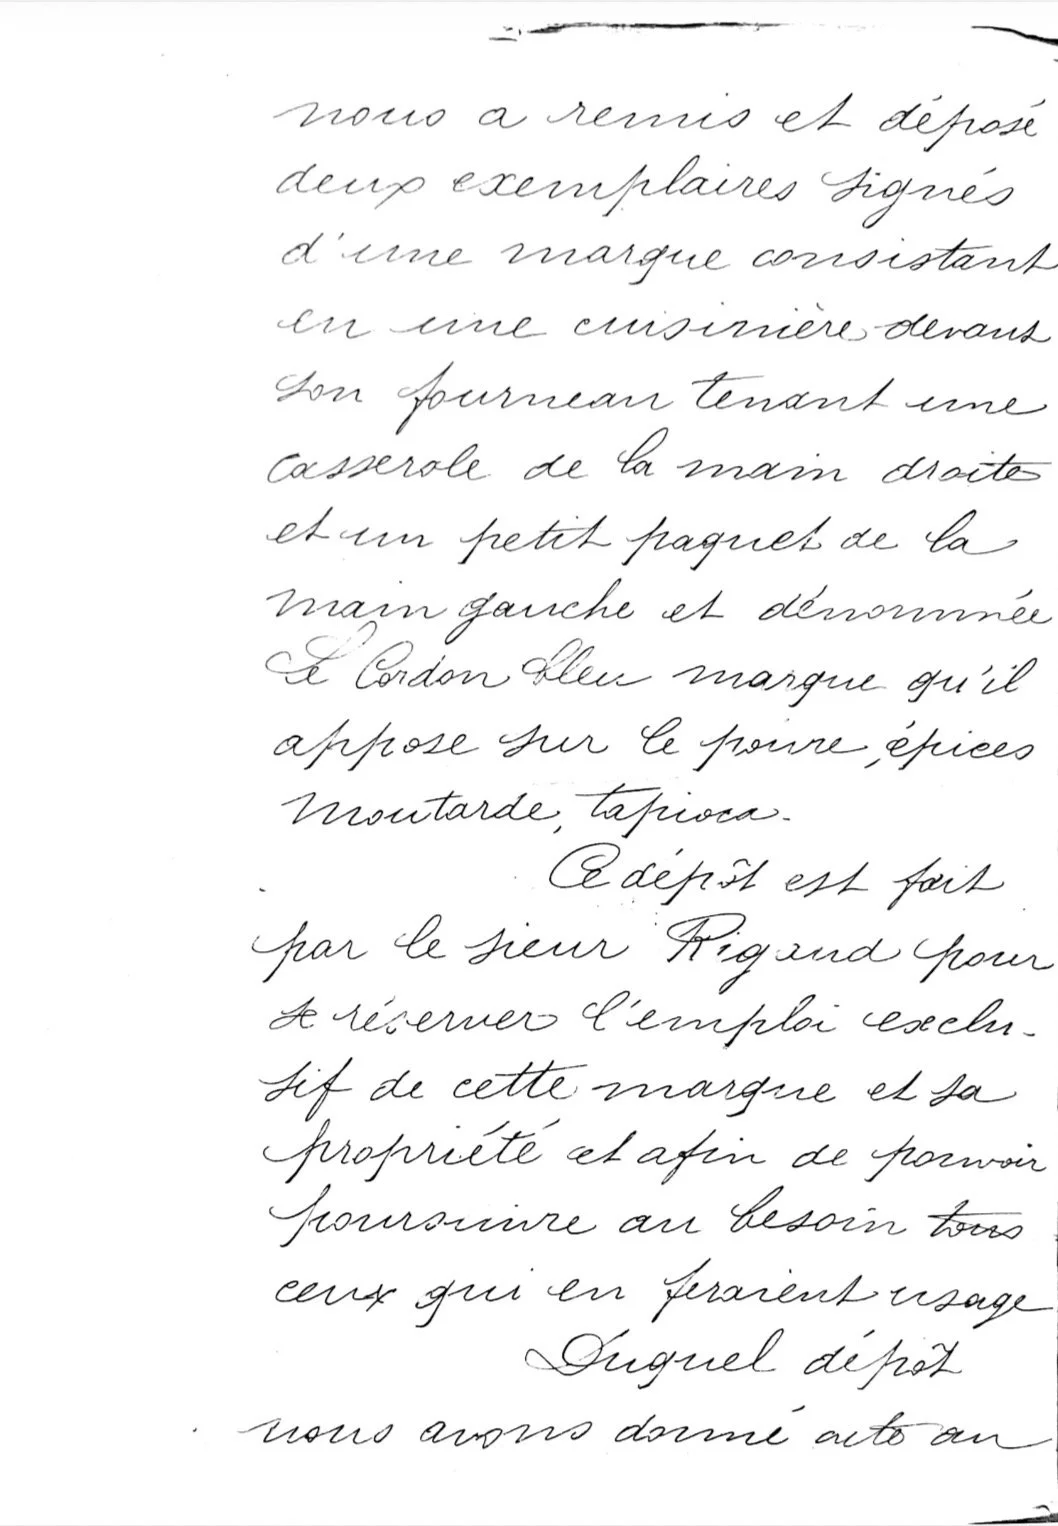 nous a remis et déposé
deux exemplaires signés
d'une marque consistant
en une cuisinière devant
son fourneau tenant une
casserole de la main droite
et un petit paquet de la
main gauche et dénommée
Le Cordon bleu marque qu'il
appose sur le poivre, épices
moutarde, tapioca.
Ce dépôt est fait
par le sieur Rigaud pour
se réserver l'emploi exclu-
sif de cette marque et sa
propriété et afin de pouvoir
poursuivre au besoin tous
ceux qui en feraient usage
Duquel dépôt
nous avons donné acte au